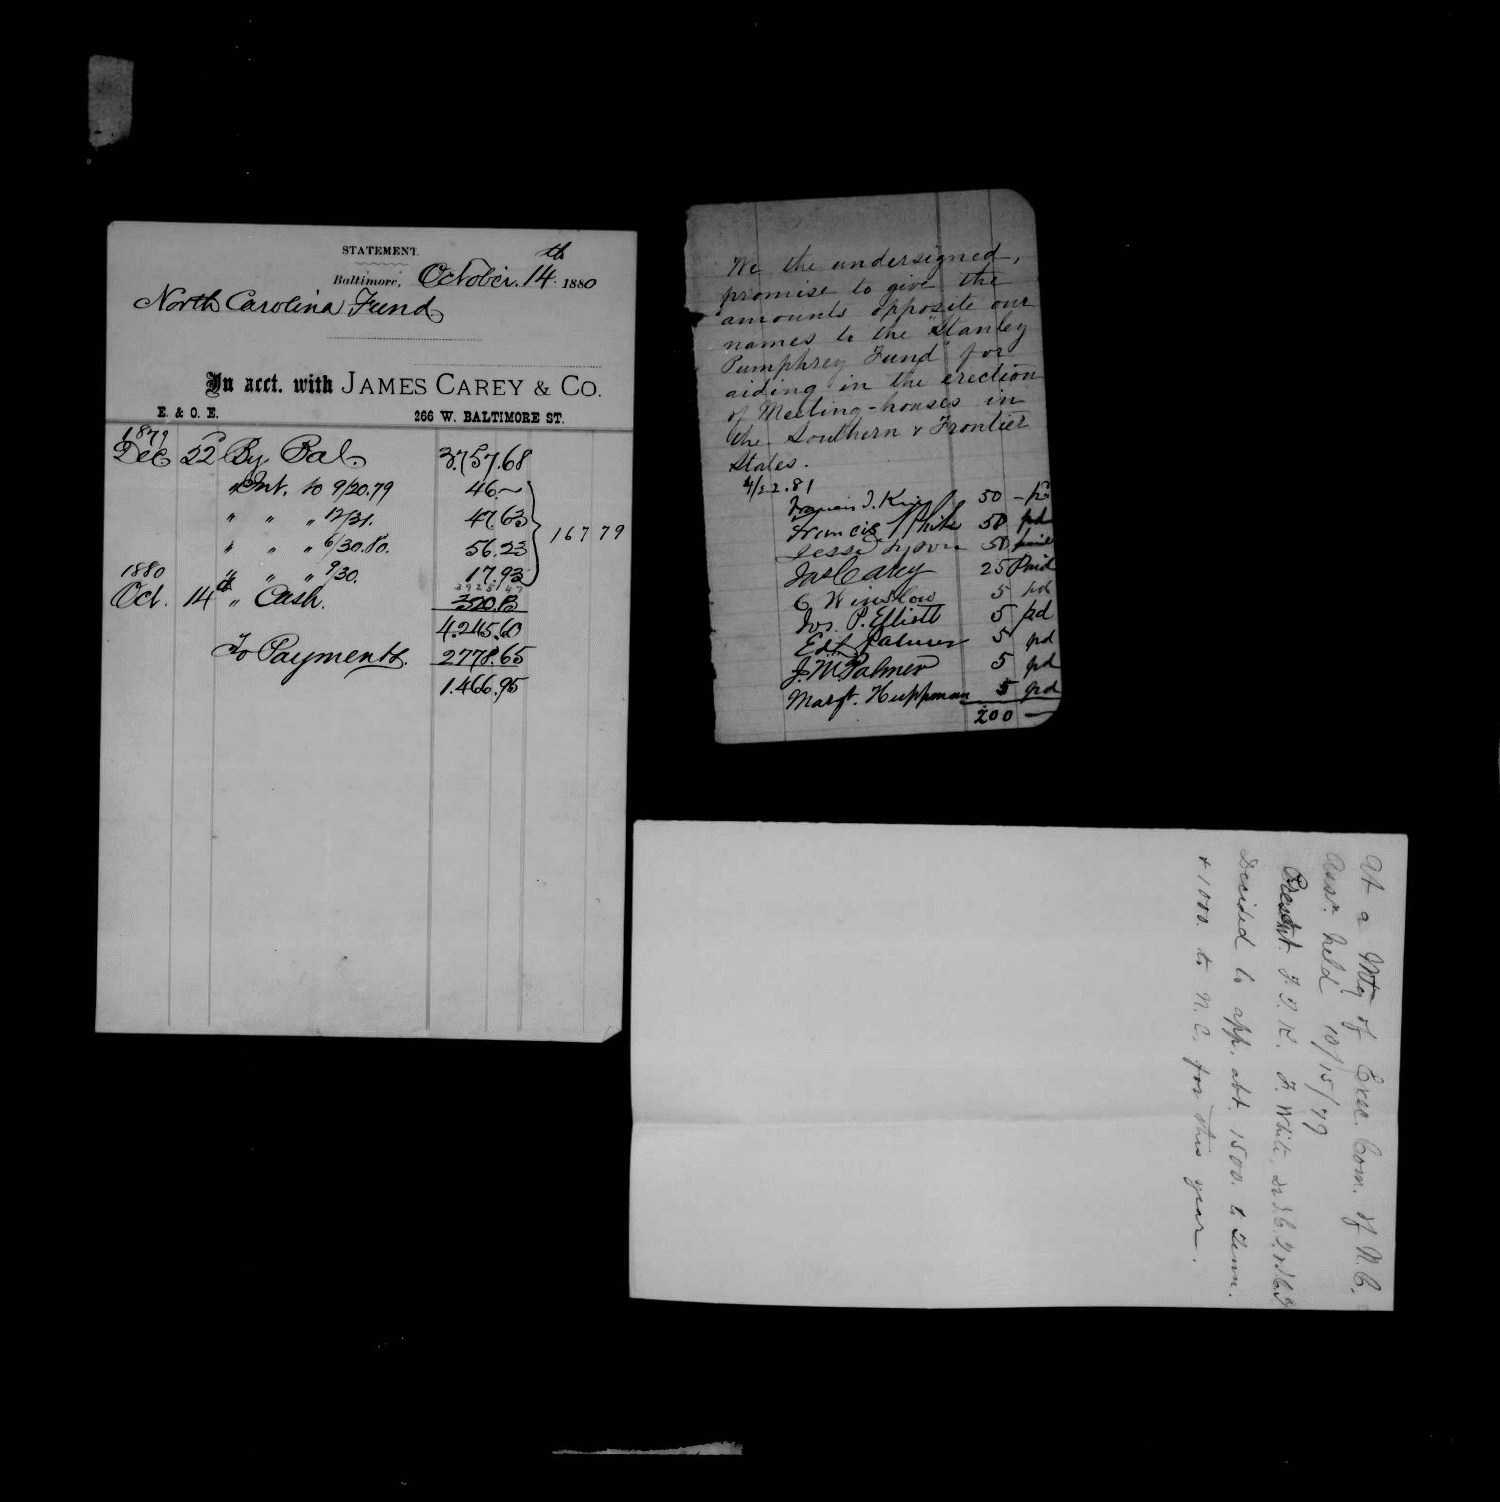 STATEMENT.
Baltimore, October 14th 1880
North Carolina Fund
In acct. with JAMES CAREY & Co.
E. & O. E. 266 W. BALTIMORE ST.
1879
Dec 22 By Bal. 3,757.68
" Int. to 9/20.79 46.~
" " " 12/31. 47.63
" " " 6/30.80. 56.23
167 79
1880 " " " 9/30. 17.93
3925 47
Oct. 14 " Cash. 320.13
4.245.60
To Payments. 2778.65
1.466.95
We the undersigned,
promise to give the
amounts opposite our
names to the "Stanley
Pumphrey Fund" for
aiding in the erection
of Meeting-houses in
the Southern & Frontier
States.
4/22.81
Francis T. King 50 - pd
Francis White 50 pd
Jesse Tyson 50 paid
Jas Carey 25 Paid
C Winslow 5 pd
Jos. P. Elliott 5 pd
Ed. Palmer 5 pd
J. M. Palmer 5 pd
Margt. Huppman 5 pd
200 —
At a Mtg of Exec. Com. of N.C.
Assn. held 10/15/79
Present F. T. K. F. White,
Decided to app. abt. 1500. to Tenn.
+ 1000. to N.C. for this year.